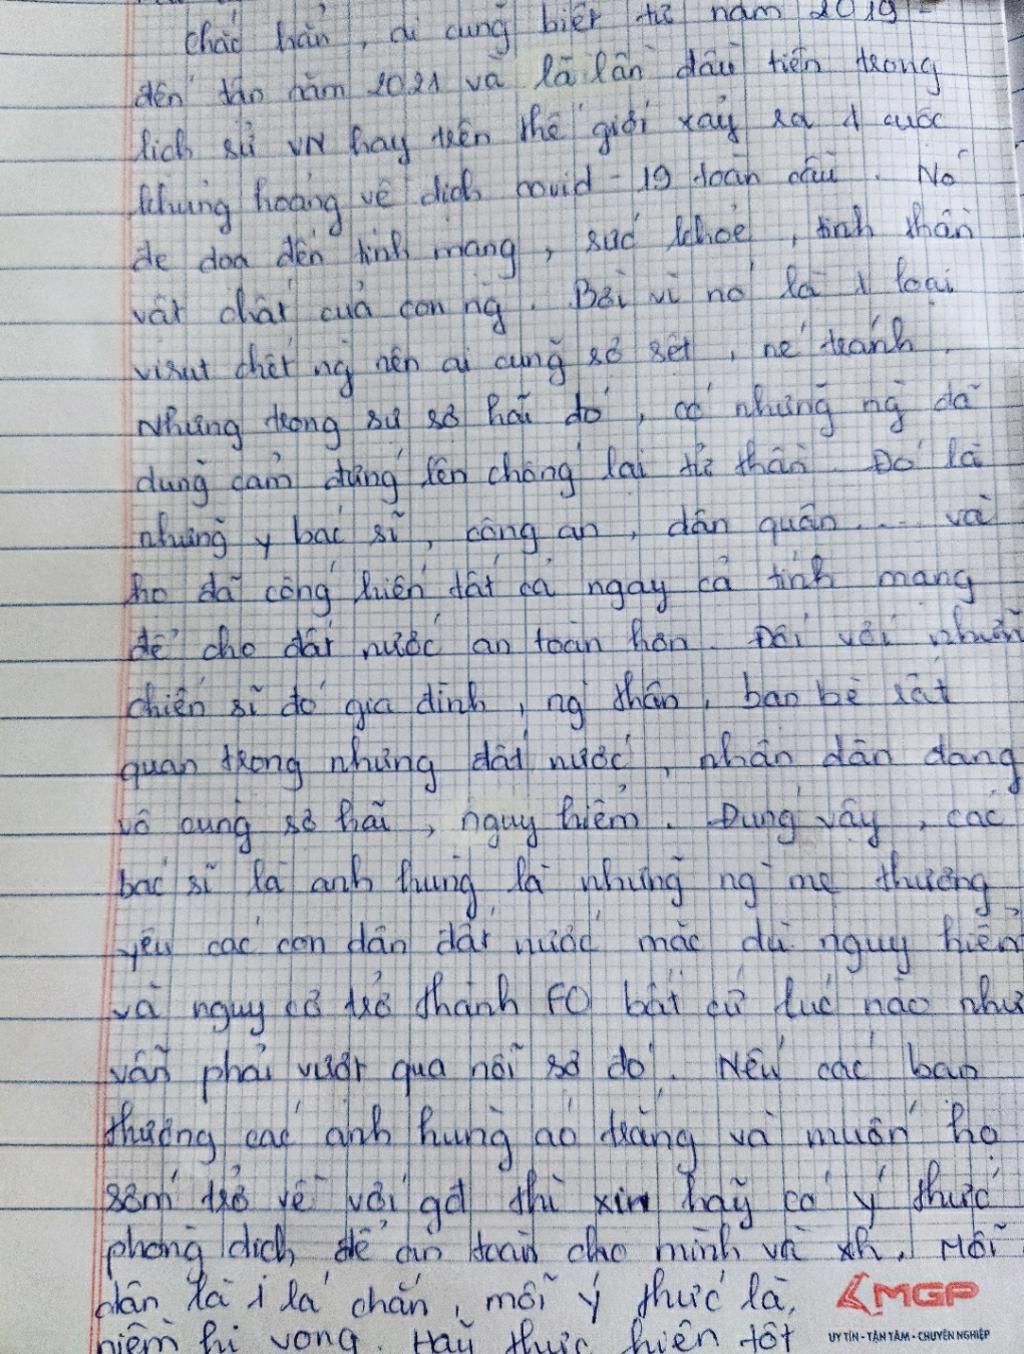 chắc hẳn, ai cũng biết từ năm 2019 -
đến tận năm 2021 và là lần đầu tiên trong
lịch sử VN hay trên thế giới xảy ra 1 cuộc
khủng hoảng về dịch covid - 19 toàn cầu. Nó
đe doạ đến tính mạng, sức khoẻ, tinh thần
vật chất của con ng. Bởi vì nó là 1 loại
virut chết ng nên ai cũng sợ sệt, né tránh.
Nhưng trong sự sợ hãi đó, có những ng đã
dũng cảm đứng lên chống lại tử thần. Đó là
những y bác sĩ, công an, dân quân.... và
họ đã cống hiến tất cả ngay cả tính mạng
để cho đất nước an toàn hơn. Đối với những
chiến sĩ đó gia đình, ng thân, bạn bè rất
quan trọng nhưng đất nước, nhân dân đang
vô cùng sợ hãi, nguy hiểm. Đúng vậy, các
bác sĩ là anh hùng là những ng mẹ thương
yêu các con dân đất nước mặc dù nguy hiểm
và nguy cơ trở thành F0 bất cứ lúc nào như
vẫn phải vượt qua nỗi sợ đó. Nếu các bạn
thương các anh hùng áo trắng và muốn họ
sớm trở về với gđ thì xin hãy có ý thức
phòng dịch để an toàn cho mình và xh. Mỗi
dân là 1 lá chắn, mỗi ý thức là,
niềm hi vọng. Hãy thực hiện tốt
MGP
UY TÍN - TẬN TÂM - CHUYÊN NGHIỆP